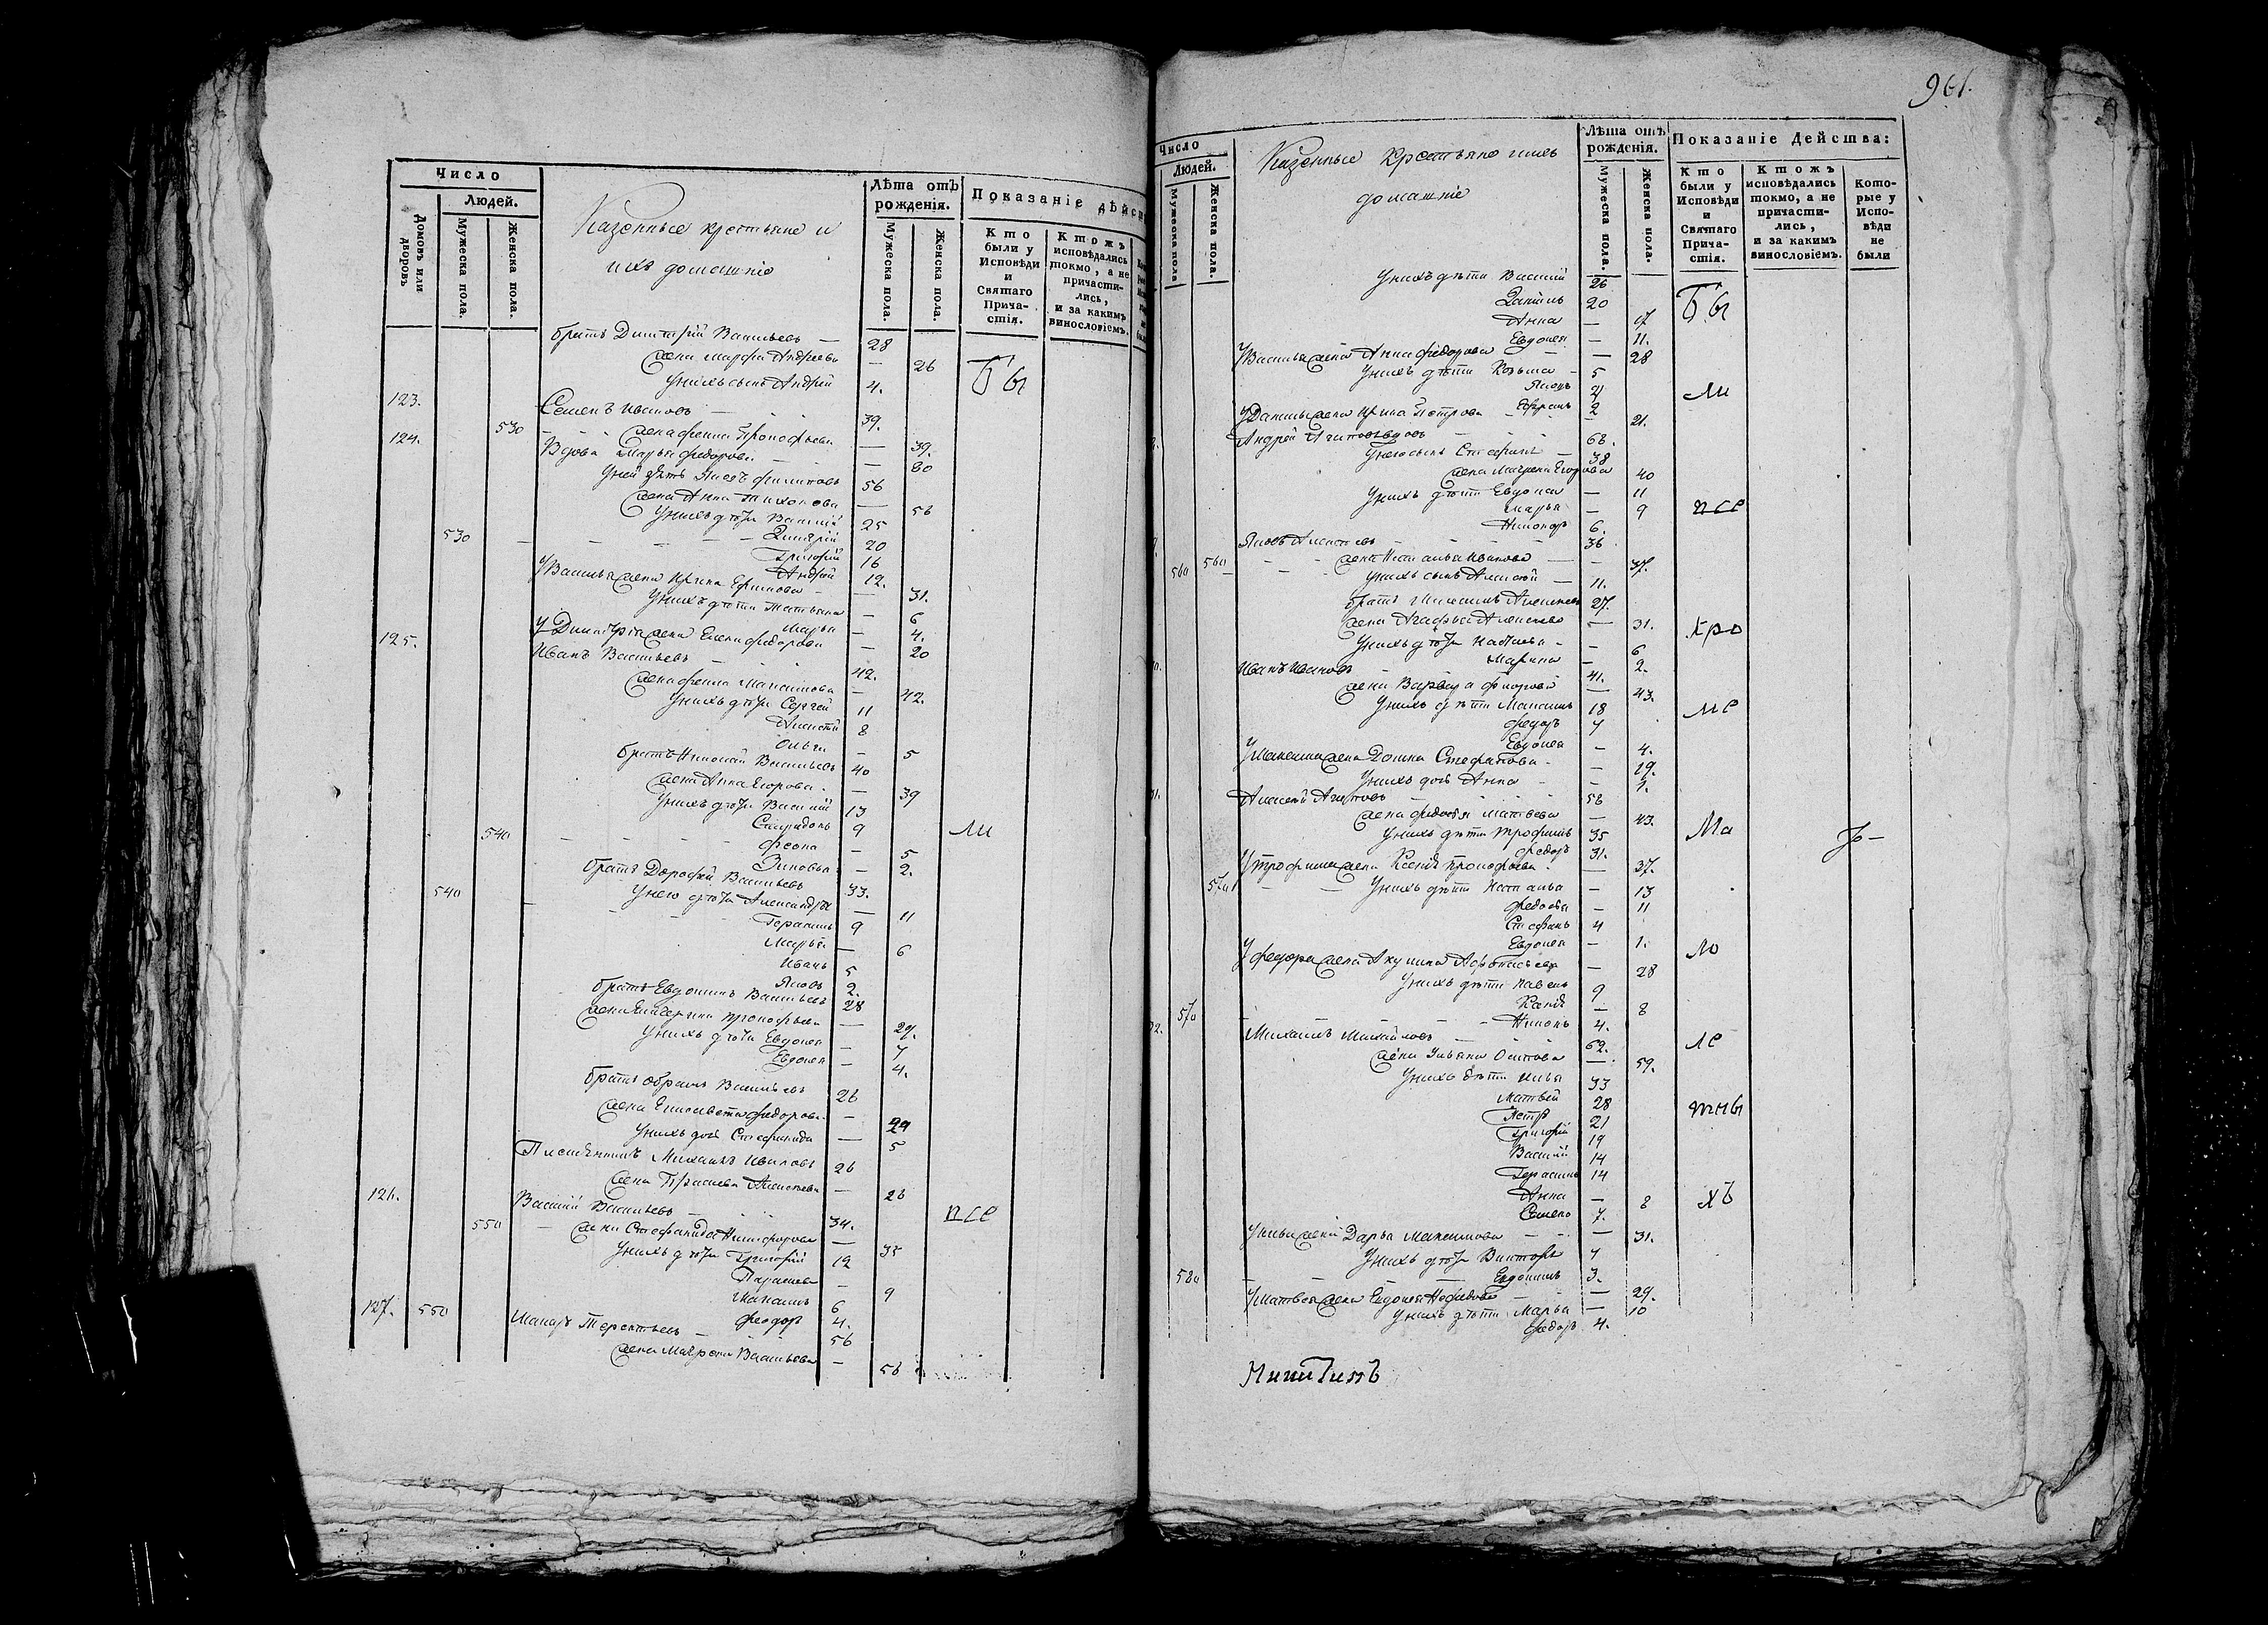 Число
Людей.
Домовъ или дворовъ
Мужеска пола.
Женска пола.
Казенные крестьяне и
ихъ домашніе
Лѣта отъ рожденія.
Мужеска пола.
Женска пола.
Показаніе дѣйс
Кто были у Исповѣди и Святаго Прича-стія.
Ктожъ исповѣдались токмо, а не причасти-лись, и за какимъ винословіемъ.
братъ Димитрій Васильевъ — 28
жена Марфа Андреева — 26
У нихъ сынъ Андрей 4. Бы
123. Семенъ Ивановъ — 39.
530 жена Прокофьева — 39.
124. Вдова Марья Федорова — 80
У ней зять Филиповъ 56
жена Анна Тихонова — 56
У нихъ дѣти Василій 25
530 Димитрій 20
Григорій 16
Андрей 12.
У Василья жена Ирина Ефимова — 31.
У нихъ дѣти Татьяна — 6
Марья — 4.
У Димитрія жена Елена Федорова — 20
125. Иванъ Васильевъ — 42.
жена Максимова — 42.
У нихъ дѣти Сергей 11
Алексѣй 8
Ольга — 5
братъ Николай Васильевъ 40
жена Анна Егорова — 39
У нихъ дѣти Василій 13
Спиридонъ 9 ли
540 — 5
Зиновья — 2.
братъ Дорофей Васильевъ 33.
540 У него дѣти Александра — 11
Герасимъ 9
Марья — 6
Иванъ 5
Яковъ 2.
братъ Евдокимъ Васильевъ 28
жена Катерина Прокофьева — 29.
У нихъ дѣти Евдокея — 7
Евдокея — 4.
братъ Абрамъ Васильевъ 26
жена Елисавета Федорова — 29
У нихъ дочь Стефанида — 5
Племянникъ Михаилъ Ивановъ 26
жена Прасковья Алексѣева — 26
126. Василій Васильевъ — 34. псе
550 жена Стефанида Никифорова — 35
У нихъ дѣти Григорій 12
Парасковья — 9
Максимъ 6
Феодоръ 4.
127. 550 Макаръ Терентьевъ — 56
жена Матрона Васильева — 56
961.
Число
Людей.
Мужеска пола
Женска пола.
Казенные крестьяне ихъ
домашніе
Лѣта отъ рожденія.
Мужеска пола.
Женска пола.
Показаніе Действа:
Кто были у Исповѣди и Святаго Прича-стія.
Ктожъ исповѣдались токмо, а не причасти-лись, и за какимъ винословіемъ.
Кото-рые у Испо-вѣди не были
У нихъ дѣти Василій 26
Данилъ 20 Бы
Анна — 17
Евдокея — 11.
У Василья жена Анна Федорова — 28
У нихъ дѣти Козьма — 5
Яковъ 4 ли
Ефремъ 2
У Данилы жена Ирина Петрова — 21.
Андрей — 68.
У него сынъ Стефанъ — 38
жена Матрена Егорова 40
У нихъ дѣти Евдокея — 11
Марья — 9 псе
Никоноръ 6.
Яковъ Алексѣевъ — 36
560 560 жена Наталья Иванова — 37.
У нихъ сынъ Алексѣй — 11.
братъ Максимъ Алексѣевъ 27.
жена Агафья Алексѣева — 31. кро
У нихъ дѣти Наталья — 6
Марина — 2.
Иванъ Ивановъ 41.
жена Варвара — 43.
У нихъ дѣти Максимъ 18 ме
Федоръ 7
Евдокея — 4.
У Максима жена Домна Стефанова — 19.
У нихъ дочь Анна — 1.
Алексѣй Агаповъ 58
жена Федосья Матвеева — 43.
У нихъ дѣти Трофимъ 35 ма
Федоръ 31.
У Трофима жена Ксенія Прокофьева — 37.
570 У нихъ дѣти Наталья — 13
Федосья — 11
Стефанъ 4
Евдокея — 1. ло
У Федора жена Акулина Афонасьева — 28
У нихъ дѣти Павелъ 9
Ксенія — 8
570 Никонъ 4.
Михаилъ Михайловъ 62. ле
жена Ульяна Осипова — 59.
У нихъ дѣти Илья 33
Матвѣй 28 тны
Петръ 21
Григорій 19
Василій 14
Герасимъ 14
Анна — 8 хъ
Семенъ 7.
У Ильи жена Дарья Максимова — 31.
У нихъ дѣти Викторъ 7
580 Евдокимъ 3.
У Матвея жена Евдокея Нефедова — 29.
У нихъ дѣти Марья — 10
Федоръ 4.
Никитинъ